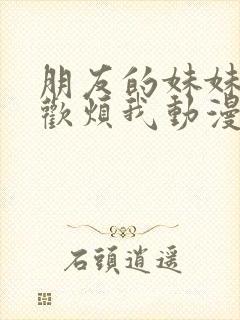 朋友的妹妹
歡煩我動漫
石頭逍遥